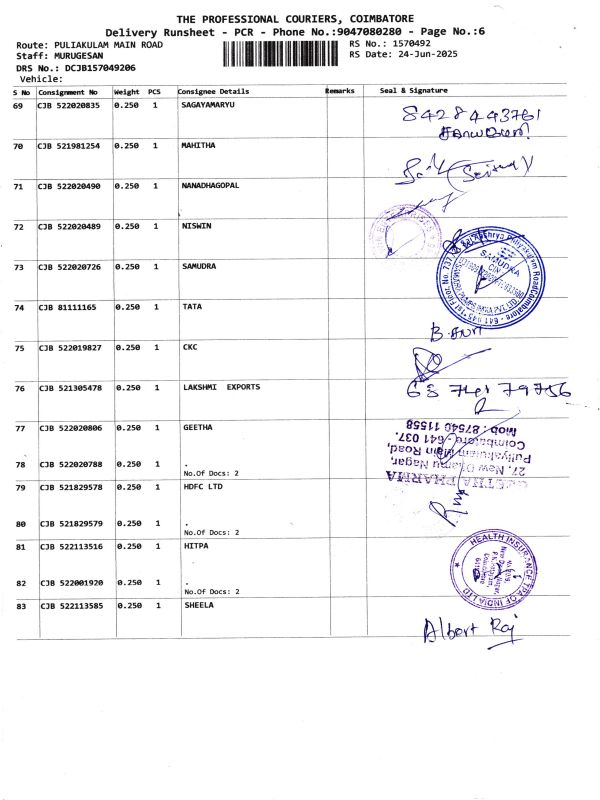 THE PROFESSIONAL COURIERS, COIMBATORE
Delivery Runsheet - PCR - Phone No.:9047080280 - Page No.:6
Route: PULIAKULAM MAIN ROAD RS No.: 1570492
Staff: MURUGESAN RS Date: 24-Jun-2025
DRS No.: DCJB157049206
Vehicle:
S No Consignment No Weight PCS Consignee Details Remarks Seal & Signature
69 CJB 522020835 0.250 1 SAGAYAMARYU
8428443761
70 CJB 521981254 0.250 1 MAHITHA
71 CJB 522020490 0.250 1 NANADHAGOPAL
72 CJB 522020489 0.250 1 NISWIN
73 CJB 522020726 0.250 1 SAMUDRA
SAMUDRA
74 CJB 81111165 0.250 1 TATA
75 CJB 522019827 0.250 1 CKC
76 CJB 521305478 0.250 1 LAKSHMI EXPORTS
77 CJB 522020806 0.250 1 GEETHA
GEETHA PHARMA
27, New Damu Nagar,
Puliyakulam Main Road,
Coimbatore - 641 037.
Mob : 87540 11558
78 CJB 522020788 0.250 1 .
No.Of Docs: 2
79 CJB 521829578 0.250 1 HDFC LTD
80 CJB 521829579 0.250 1 .
No.Of Docs: 2
81 CJB 522113516 0.250 1 HITPA
HEALTH INSURANCE TPA OF INDIA LTD
82 CJB 522001920 0.250 1 .
No.Of Docs: 2
83 CJB 522113585 0.250 1 SHEELA
Albert Raj